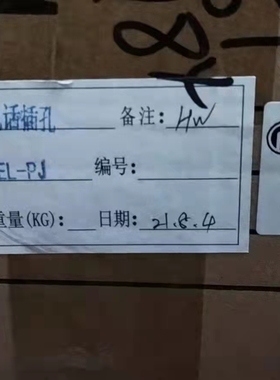 话插孔 备注: HW
EL-PJ 编号:
重量(KG): 日期: 21.6.4